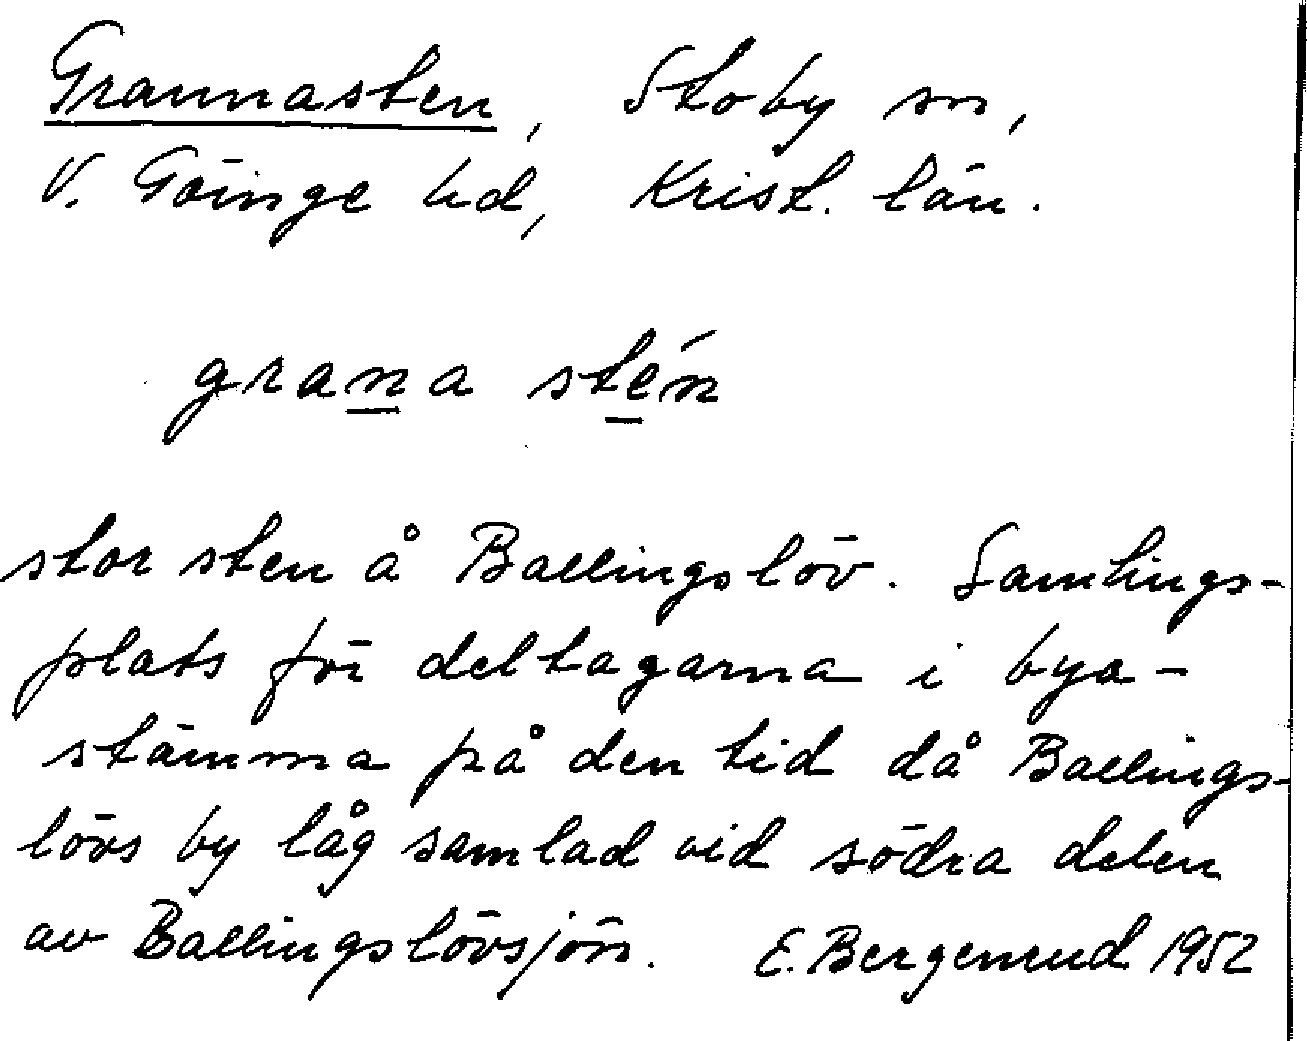 Grannasten, Stoby sn,
V. Göinge hd, Krist. län.
grana stén
stor sten å Ballingslöv. Samlings-
plats för deltagarna i bya-
stämma på den tid då Ballings-
lövs by låg samlad vid södra delen
av Ballingslövsjön. E. Bergenrud 1952